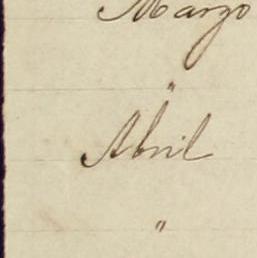 Marzo
"
Abril
"